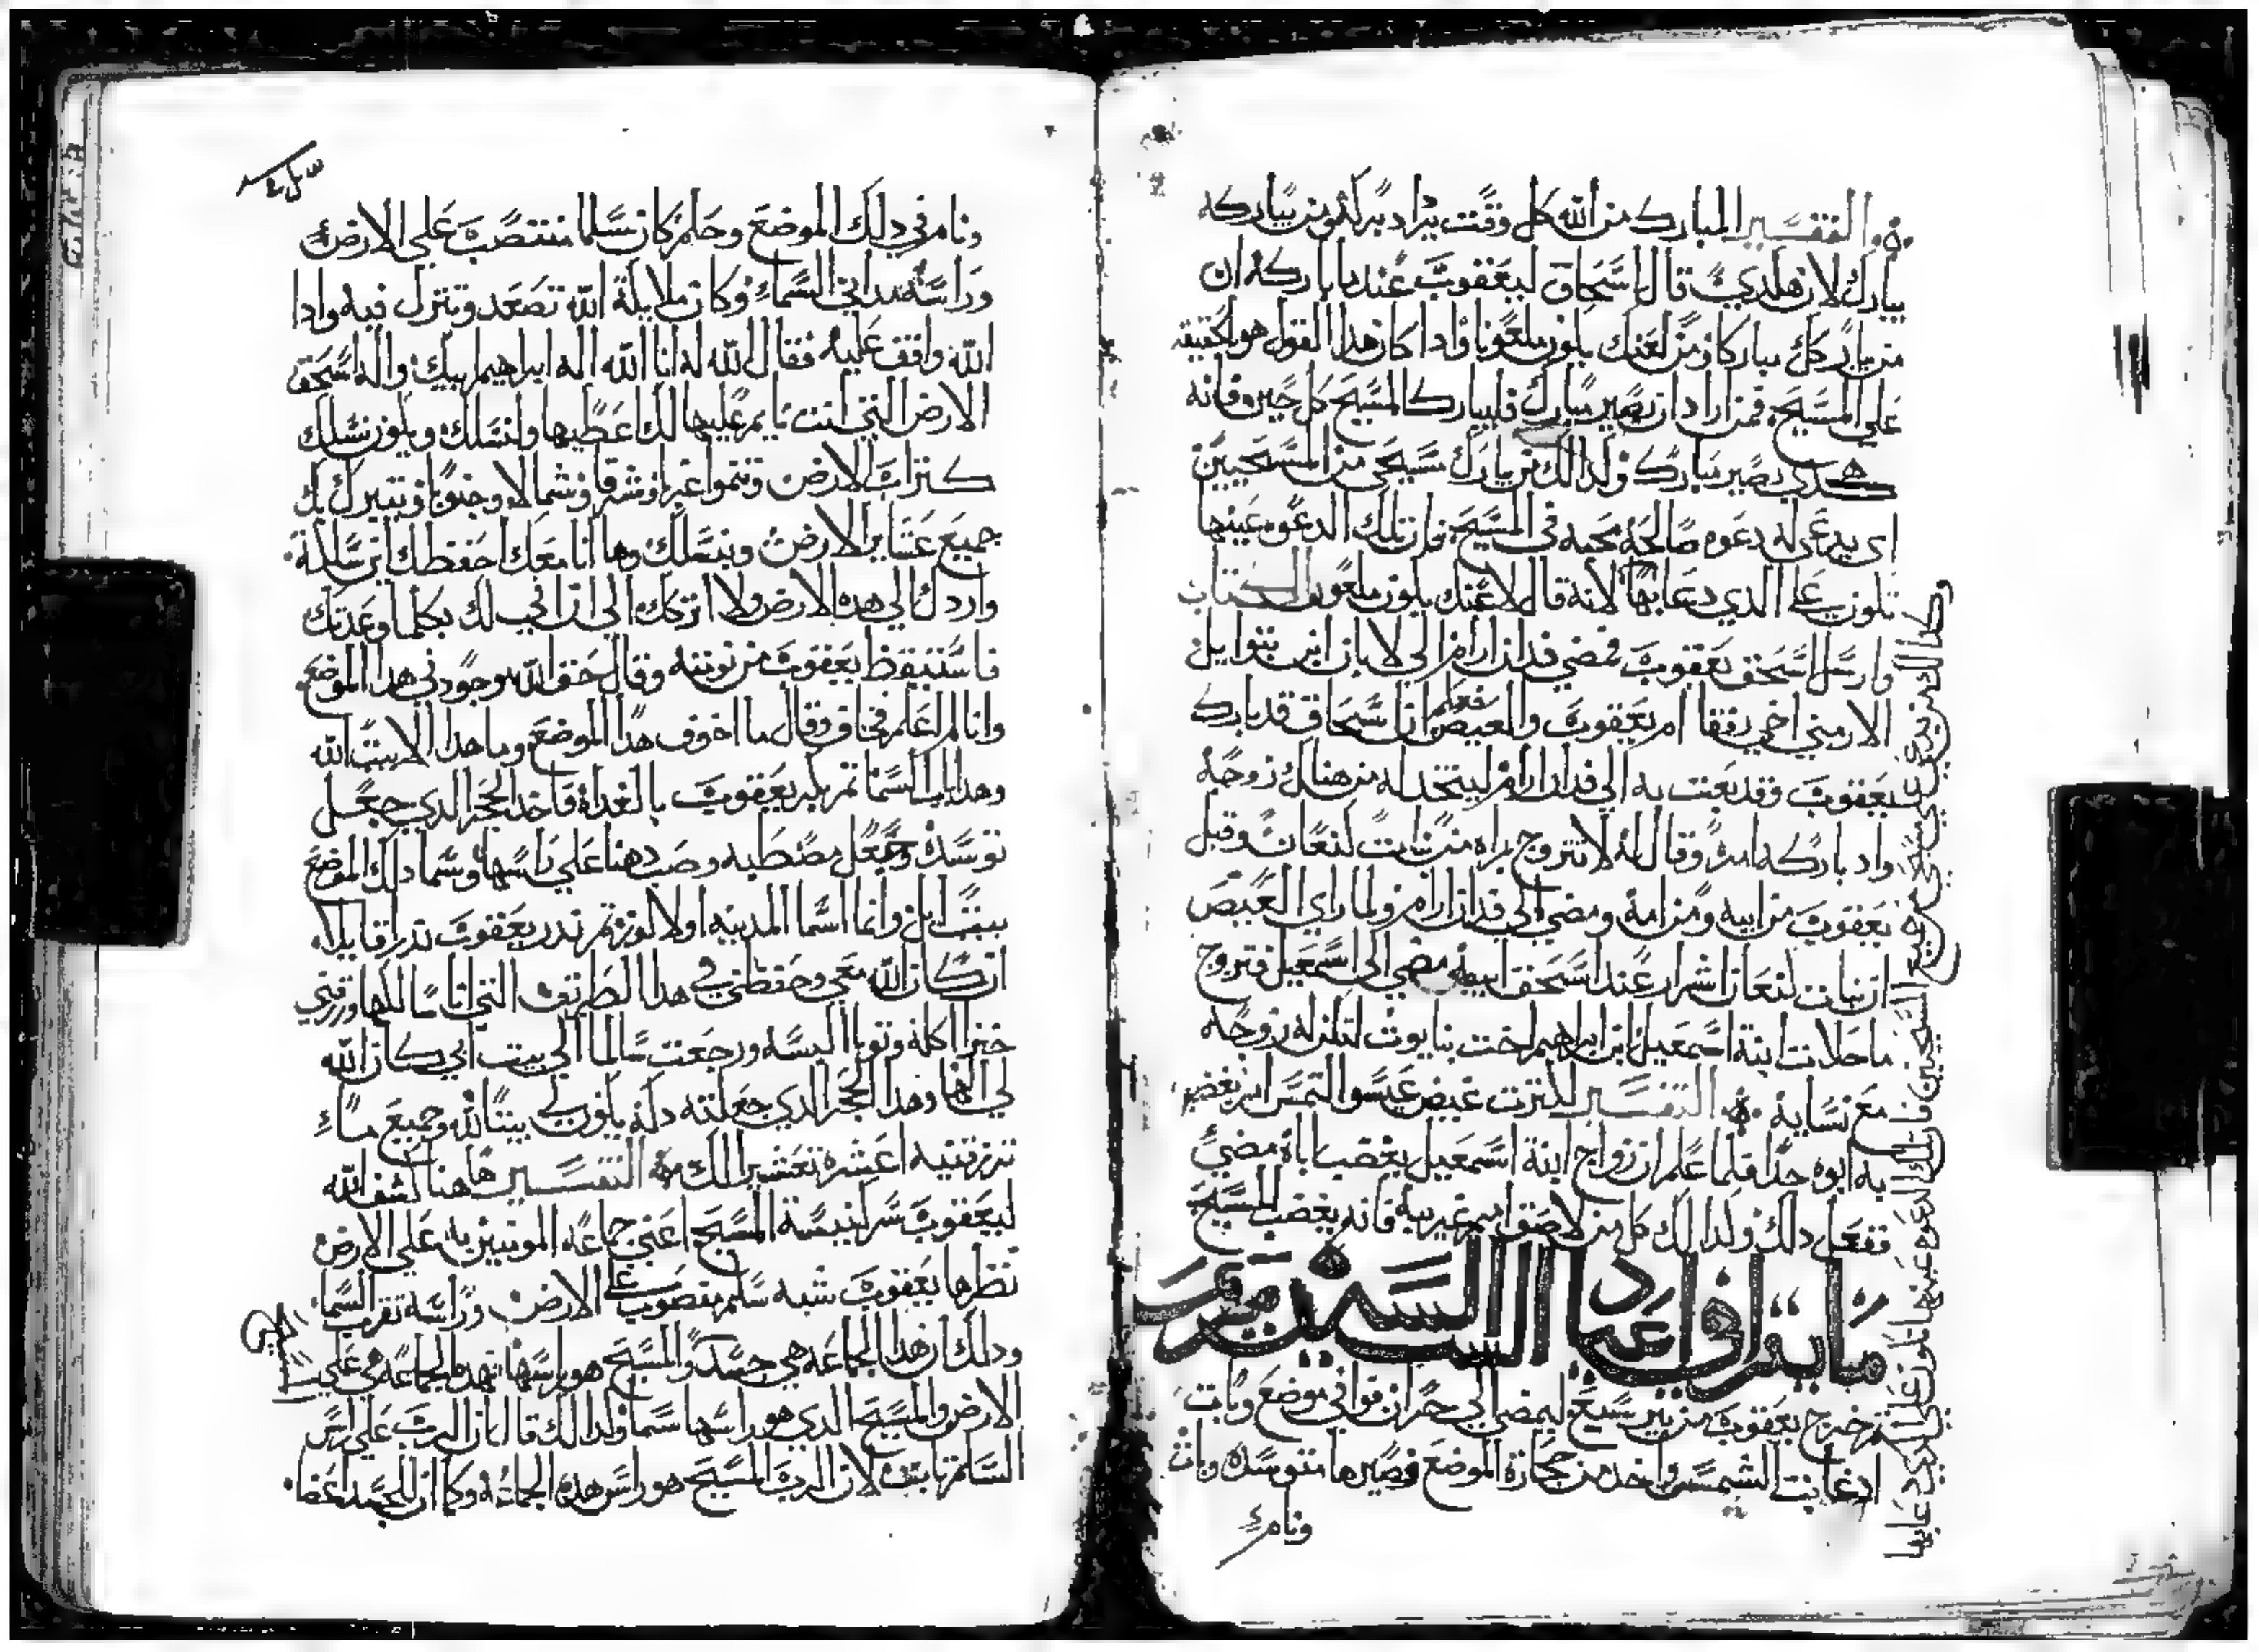 التفسير المبارك من الله كل وقت يزاد بركة ومن يباركه
يبارك لان هكدي قال اسحاق ليعقوب عندما باركه ان
من يباركك مباركا ومن لعنك يكون ملعونا وادا كان هدا القول هو الحقيقه
على المسيح فمن اراد ان يصير مبارك فليبارك المسيح كل حين وفانه
هكدي يصير مبارك ولدالك من بارك مسيحي من المسيحيين
اي يدعى له دعوه صالحة محبه في المسيح فان تلك الدعوه عينها
تكون على الدي دعا بها لانه قال لاعنك يكون ملعون الكتاب
وارسل اسحق يعقوب فمضي فدان ارام الي لابان ابن بتوايل
الارمني اخي رفقا ام يعقوب والعيص فعلم ان اسحاق قد بارك
يعقوب وقد بعت به الي فدان ارام ليتخد له من هناك زوجة
واد باركه امره وقال له لا تتزوج مراه من بنات كنعان وقبل
يعقوب من ابيه ومن امه ومضي الي فدان ارام ولما راي العيص
ان بنات كنعان اشرار عند اسحق ابيه مضي الي اسمعيل فتزوج
ماحلات ابنة اسمعيل ابن ابراهيم اخت بنايوت لتكن له زوجه
مع نسايه التفسير لكترت غيض عيسو التمس امر يغضب
به ابوه جدا فلما علم ان زواج ابنة اسمعيل يغضب اباه مضي
ففعل دلك ولدالك كل من لاصق اسم غريبه فانه يغضب المسيح
ما يقرا في اعياد السيده مريم
تم خرج يعقوب من بير سبع ليمضي الي حران فوافي موضع وبات
ادغابت الشمس واخد من حجارة الموضع وصيرها متوسده وبات
ونام
وكدالك من يدعي علي مسيحي من جميع المسيحيين فان تلك الدعوه عينها تكون علي الدي دعا بها
ونام في دلك الموضع وحلم كان سلما منتصب علي الارض
وراسه يداني السماء وكان ملايكة الله تصعد وتنزل فيه وادا
الله واقف عليه فقال الله له انا الله اله ابراهيم ابيك واله اسحق
الارض التي انت نايم عليها لك اعطيها ولنسلك ويكون نسلك
كتراب الارض وتنموا غربا وشرقا وشمالا وجنوبا ويتبرك بك
جميع عشاير الارض وبنسلك وها انا معك احفظك اين سلكت
واردك الي هده الارض ولا اتركك الي ان افي لك بكلما وعدتك
فاستيقظ يعقوب من نومته وقال حق الله موجود في هدا الموضع
وانا لم اعلم فخاف وقال ما اخوف هدا الموضع وما هدا الا بيت الله
وهدا باب السما تم بكر يعقوب بالغداة فاخد الحجر الدي جعل
توسده وجعل مصطبه وصب دهنا علي راسها وسما دلك الموضع
بيت ايل وانما اسما المدينه اولا لوز تم ندر يعقوب ندرا قايلا
ان كان الله معي وحفظني في هدا الطريق التي انا سالكها ورزقني
خبزا اكله وتوبا البسه ورجعت سالما الي بيت ابي كان الله
لي الها وهدا الحجر الدي جعلته دكه يكون لي بيتا لله وجميع ماء
ترزقنيه اعشره تعشيرا لك التفسير هاهنا كشف الله
ليعقوب سر كنيسة المسيح اعني جماعة المومنين به علي الارض
نظرها يعقوب شبه سلم منصوب علي الارض وراسه تقرب السما
ودلك ان هدا الجماعه هي جسد والمسيح هو راسها فهده الجماعه هي علي
الارض والمسيح الدي هو راسها سما ولدالك قال ان الرب علي راس
السلم تابت لان الرب المسيح هو راس هده الجماعه وكما ان للجسد اعضا